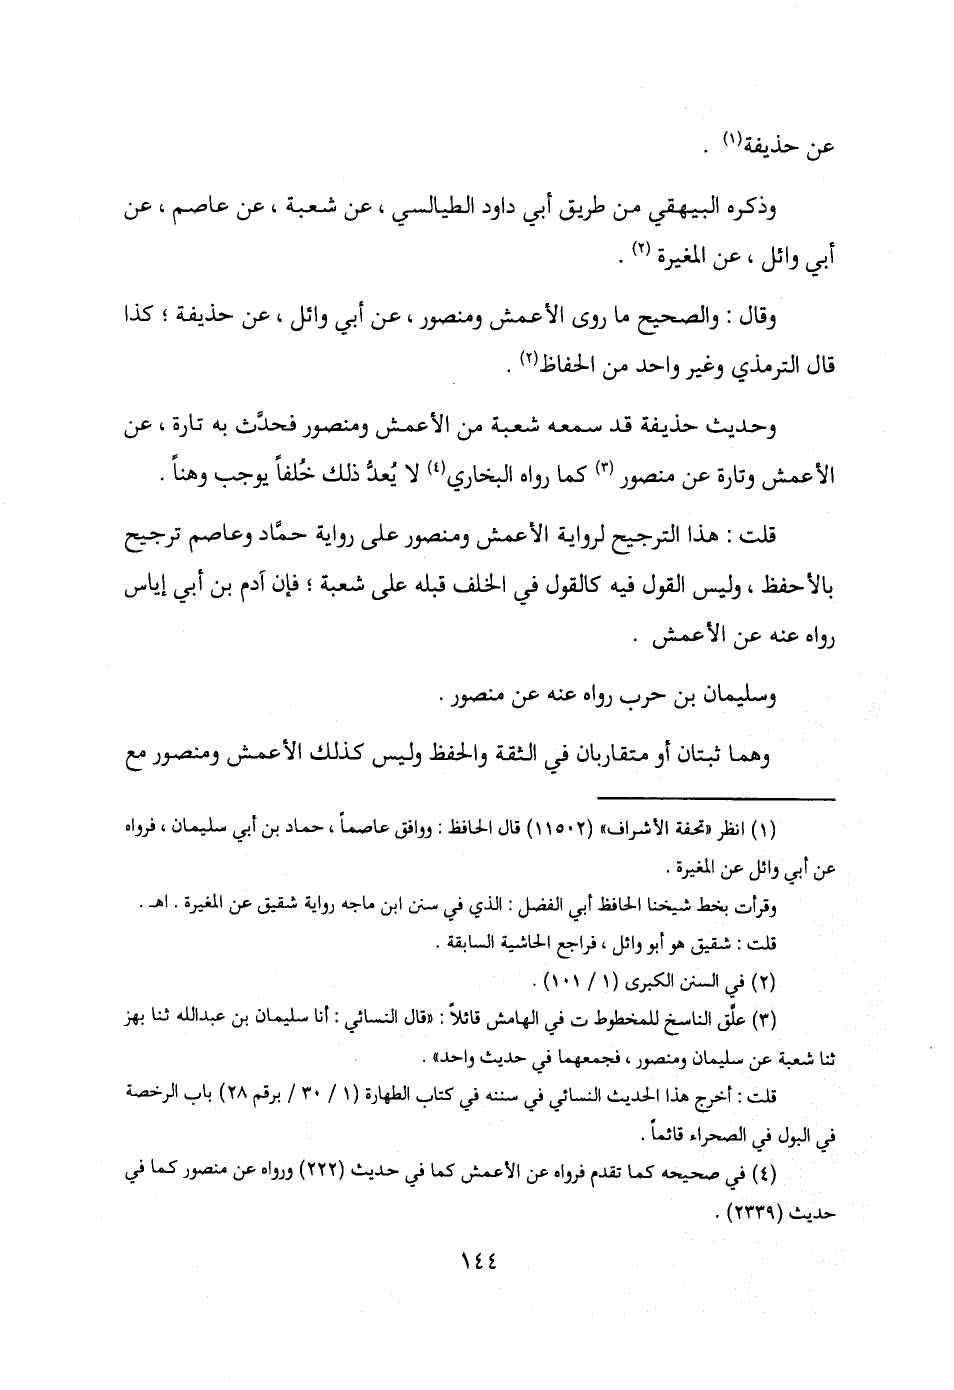 عن حذيفة(١) .
وذكره البيهقي من طريق أبي داود الطيالسي ، عن شعبة ، عن عاصم ، عن
أبي وائل ، عن المغيرة (٢) .
وقال : والصحيح ما روى الأعمش ومنصور ، عن أبي وائل ، عن حذيفة ؛ كذا
قال الترمذي وغير واحد من الحفاظ(٢) .
وحديث حذيفة قد سمعه شعبة من الأعمش ومنصور فحدَّث به تارة ، عن
الأعمش وتارة عن منصور (٣) كما رواه البخاري(٤) لا يُعدُّ ذلك خُلفاً يوجب وهناً .
قلت : هذا الترجيح لرواية الأعمش ومنصور على رواية حمَّاد وعاصم ترجيح
بالأحفظ ، وليس القول فيه كالقول في الخلف قبله على شعبة ؛ فإن آدم بن أبي إياس
رواه عنه عن الأعمش .
وسليمان بن حرب رواه عنه عن منصور .
وهما ثبتان أو متقاربان في الثقة والحفظ وليس كذلك الأعمش ومنصور مع
(١) انظر «تحفة الأشراف» (١١٥٠٢) قال الحافظ : ووافق عاصماً ، حماد بن أبي سليمان ، فرواه
عن أبي وائل عن المغيرة .
وقرأت بخط شيخنا الحافظ أبي الفضل : الذي في سنن ابن ماجه رواية شقيق عن المغيرة . اهـ .
قلت : شقيق هو أبو وائل ، فراجع الحاشية السابقة .
(٢) في السنن الكبرى (١ / ١٠١) .
(٣) علَّق الناسخ للمخطوط ت في الهامش قائلاً : «قال النسائي : أنا سليمان بن عبدالله ثنا بهز
ثنا شعبة عن سليمان ومنصور ، فجمعهما في حديث واحد» .
قلت : أخرج هذا الحديث النسائي في سننه في كتاب الطهارة (١ / ٣٠ / برقم ٢٨) باب الرخصة
في البول في الصحراء قائماً .
(٤) في صحيحه كما تقدم فرواه عن الأعمش كما في حديث (٢٢٢) ورواه عن منصور كما في
حديث (٢٣٣٩) .
١٤٤